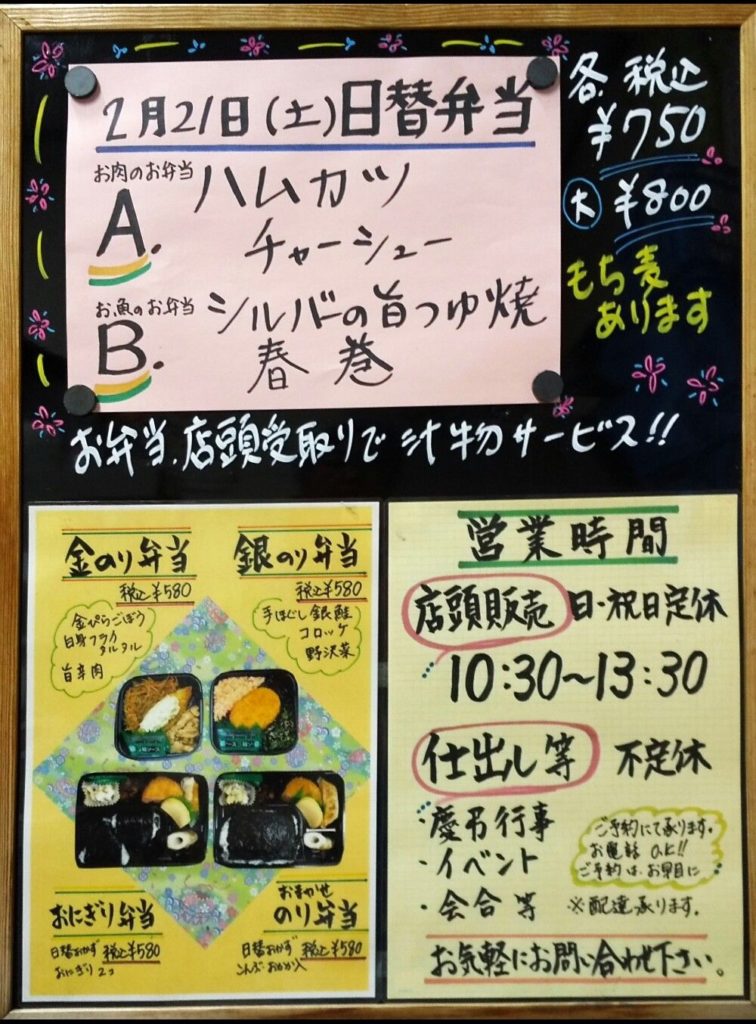 2月21日(土)日替弁当
お肉のお弁当
A. ハムカツ
チャーシュー
お魚のお弁当
B. シルバーの旨つゆ焼
春巻
各 税込
¥750
大 ¥800
もち麦
あります
お弁当、店頭受取りで汁物サービス!!
金のり弁当
税込¥580
金ぴらごぼう
白身フライ
タルタル
旨辛肉
銀のり弁当
税込¥580
手ほぐし銀鮭
コロッケ
野沢菜
おにぎり弁当
日替おかず 税込¥580
おにぎり2コ
おまかせ
のり弁当
日替おかず 税込¥580
こんぶ・おかか入
営業時間
店頭販売 日・祝日定休
10:30〜13:30
仕出し等 不定休
・慶弔行事
・イベント
・会合等
ご予約にて承ります。
お電話OK!!
ご予約は、お早目に
※配達承ります。
お気軽にお問い合わせ下さい。